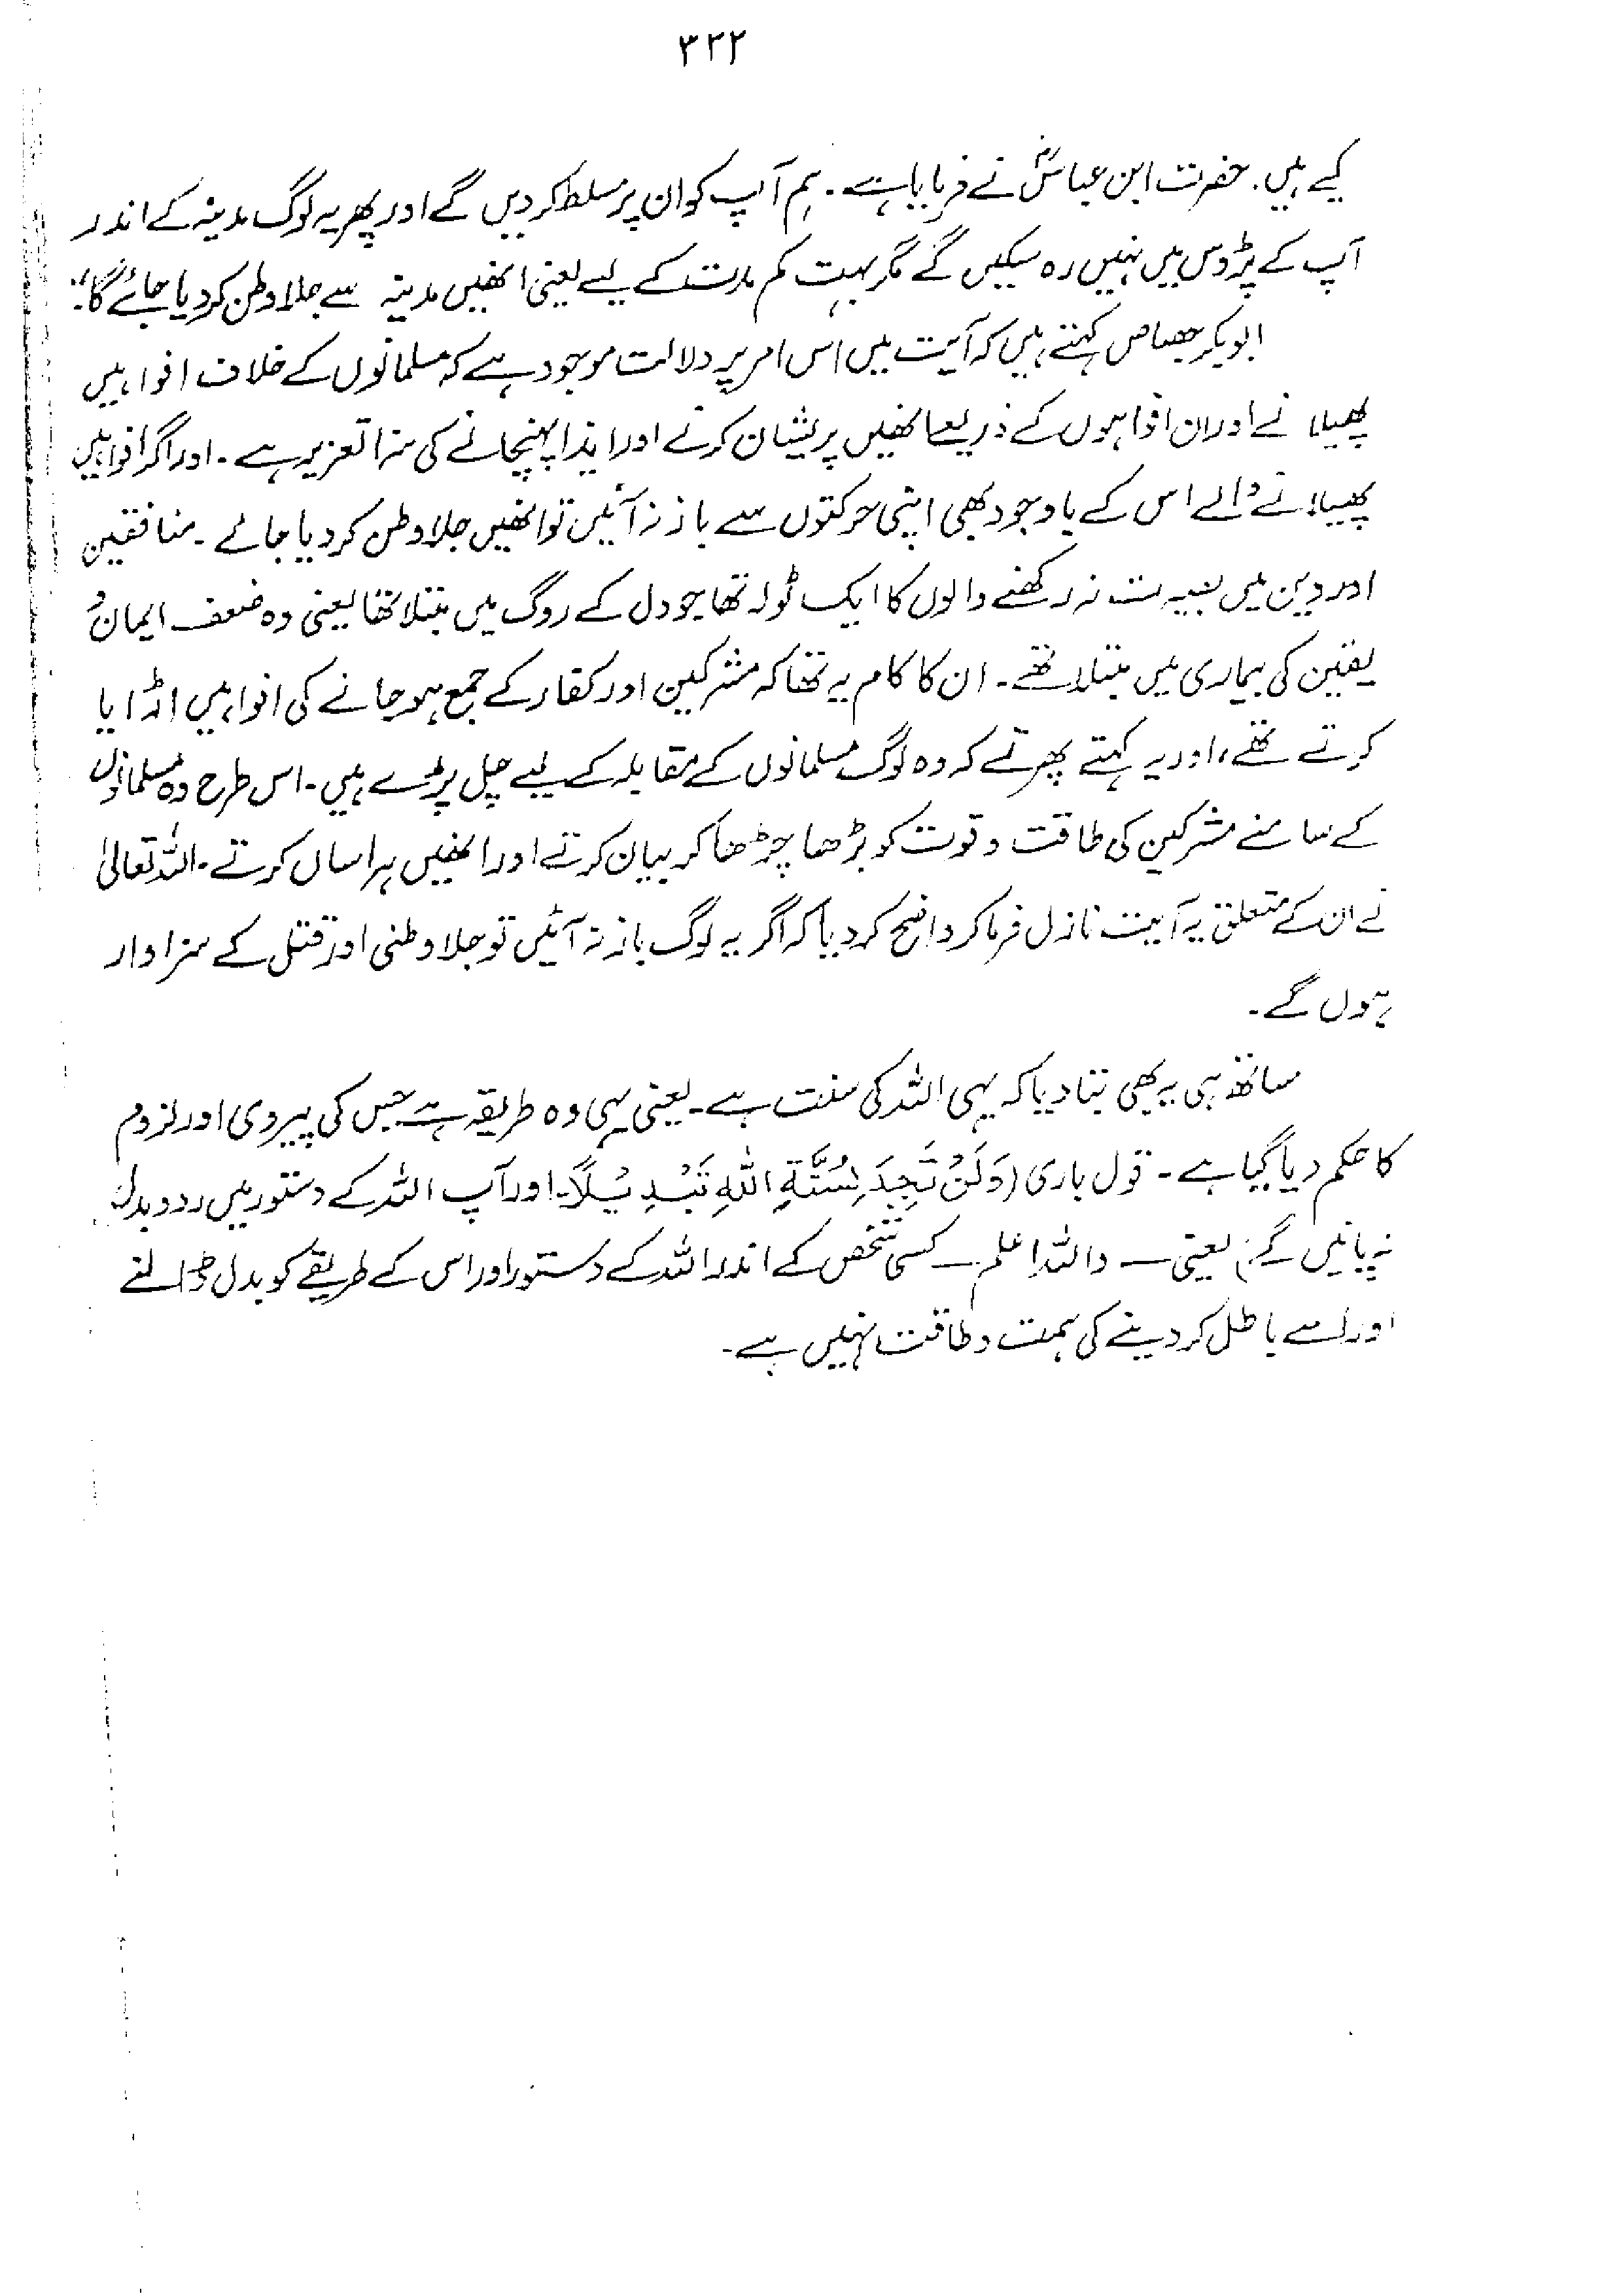 ۳۲۲
کیے ہیں. حضرت ابن عباسؓ نے فرمایا ہے۔ ہم آپ کو ان پر مسلط کردیں گے اور پھر یہ لوگ مدینہ کے اندر
آپ کے پڑوس میں نہیں رہ سکیں گے مگر بہت کم مدت کے لیے یعنی انھیں مدینہ سے جلاوطن کردیا جائے گا"
ابوبکر جصاص کہتے ہیں کہ آیت میں اس امر پر دلالت موجود ہے کہ مسلمانوں کے خلاف افواہیں
پھیلانے اور ان افواہوں کے ذریعے انھیں پریشان کرنے اور ایذا پہنچانے کی سزا تعزیر ہے۔ اور اگر افواہیں
پھیلانے والے اس کے باوجود بھی اپنی حرکتوں سے باز نہ آئیں تو انھیں جلاوطن کردیا جائے۔ منافقین
اور دین میں بصیرت نہ رکھنے والوں کا ایک ٹولہ تھا جو دل کے روگ میں مبتلا تھا یعنی وہ ضعف ایمان و
یقین کی بیماری میں مبتلا تھے۔ ان کا کام یہ تھا کہ مشرکین اور کفار کے جمع ہوجانے کی افواہیں اڑایا
کرتے تھے، اور یہ کہتے پھرتے کہ وہ لوگ مسلمانوں کے مقابلہ کے لیے چل پڑے ہیں۔ اس طرح وہ مسلمانوں
کے سامنے مشرکین کی طاقت و قوت کو بڑھا چڑھا کر بیان کرتے اور انھیں ہراساں کرتے۔ اللہ تعالیٰ
نے ان کے متعلق یہ آیت نازل فرماکر واضح کردیا کہ اگر یہ لوگ باز نہ آئیں تو جلاوطنی اور قتل کے سزاوار
ہوں گے۔
ساتھ ہی یہ بھی بتادیا کہ یہی اللہ کی سنت ہے۔ یعنی یہی وہ طریقہ ہے جس کی پیروی اور لزوم
کا حکم دیا گیا ہے۔ قول باری (وَلَنْ تَجِدَ لِسُنَّةِ اللّٰهِ تَبْدِيْلًا۔ اور آپ اللہ کے دستور میں ردوبدل
نہ پائیں گے) یعنی — واللہ اعلم — کسی شخص کے اندر اللہ کے دستور اور اس کے طریقے کو بدل ڈالنے
اور اسے باطل کردینے کی ہمت و طاقت نہیں ہے۔